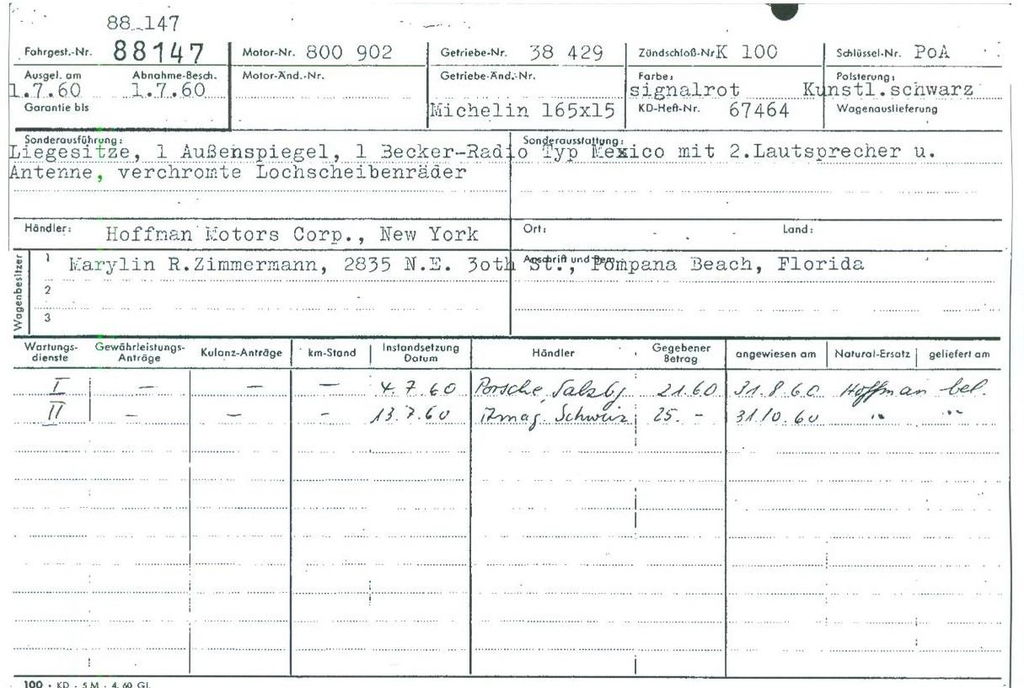 88 147
Fahrgest.-Nr. 88147 Motor-Nr. 800 902 Getriebe-Nr. 38 429 Zündschloß-Nr. K 100 Schlüssel-Nr. PoA
Ausgel. am Abnahme-Besch. Motor-Änd.-Nr. Getriebe-Änd.-Nr. Farbe: Polsterung:
1.7.60 1.7.60 signalrot Kunstl.schwarz
Garantie bis Michelin 165x15 KD-Heft-Nr. 67464 Wagenauslieferung
Sonderausführung: Sonderausstattung:
Liegesitze, 1 Außenspiegel, 1 Becker-Radio Typ Mexico mit 2.Lautsprecher u.
Antenne, verchromte Lochscheibenräder
Händler: Hoffman Motors Corp., New York Ort: Land:
Wagenbesitzer
1 Marylin R.Zimmermann, 2835 N.E. 3oth St., Pompana Beach, Florida
Anschrift und
2
3
Wartungs- Gewährleistungs- Kulanz-Anträge km-Stand Instandsetzung Händler Gegebener angewiesen am Natural-Ersatz geliefert am
dienste Anträge Datum Betrag
I – – – 4.7.60 Porsche, Salzbg. 21.60 31.8.60 Hoffman bel.
II – – – 13.7.60 Amag, Schweiz 25.- 31.10.60 " "
100 · KD · 5 M · 4. 60 GL